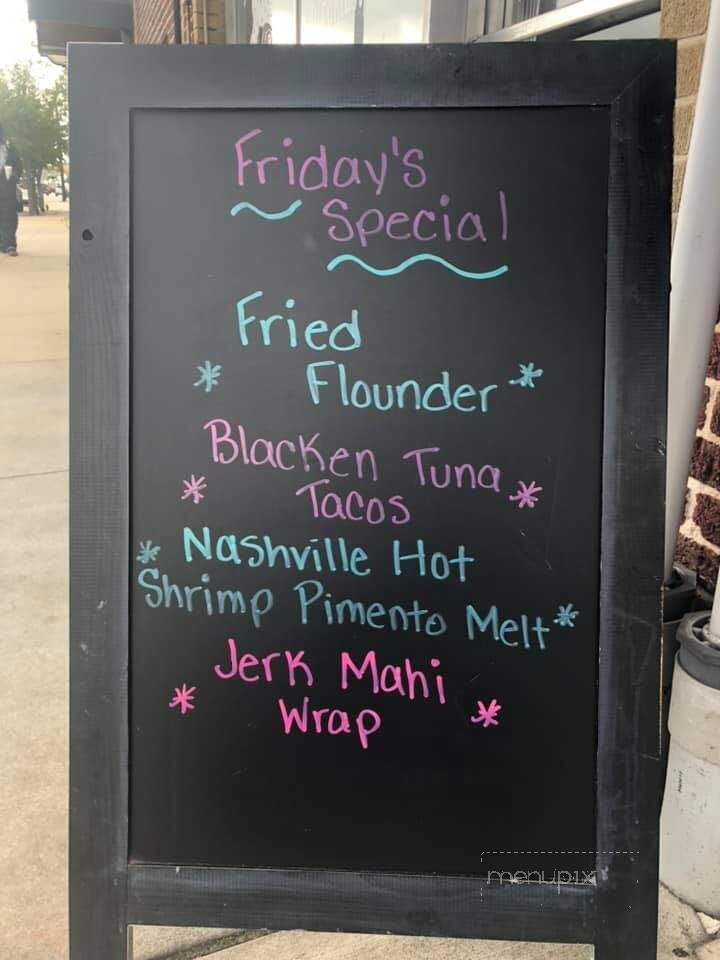 Friday's
Special
Fried
* Flounder *
Blacken Tuna
* Tacos *
* Nashville Hot
Shrimp Pimento Melt *
Jerk Mahi
* Wrap *
menupix